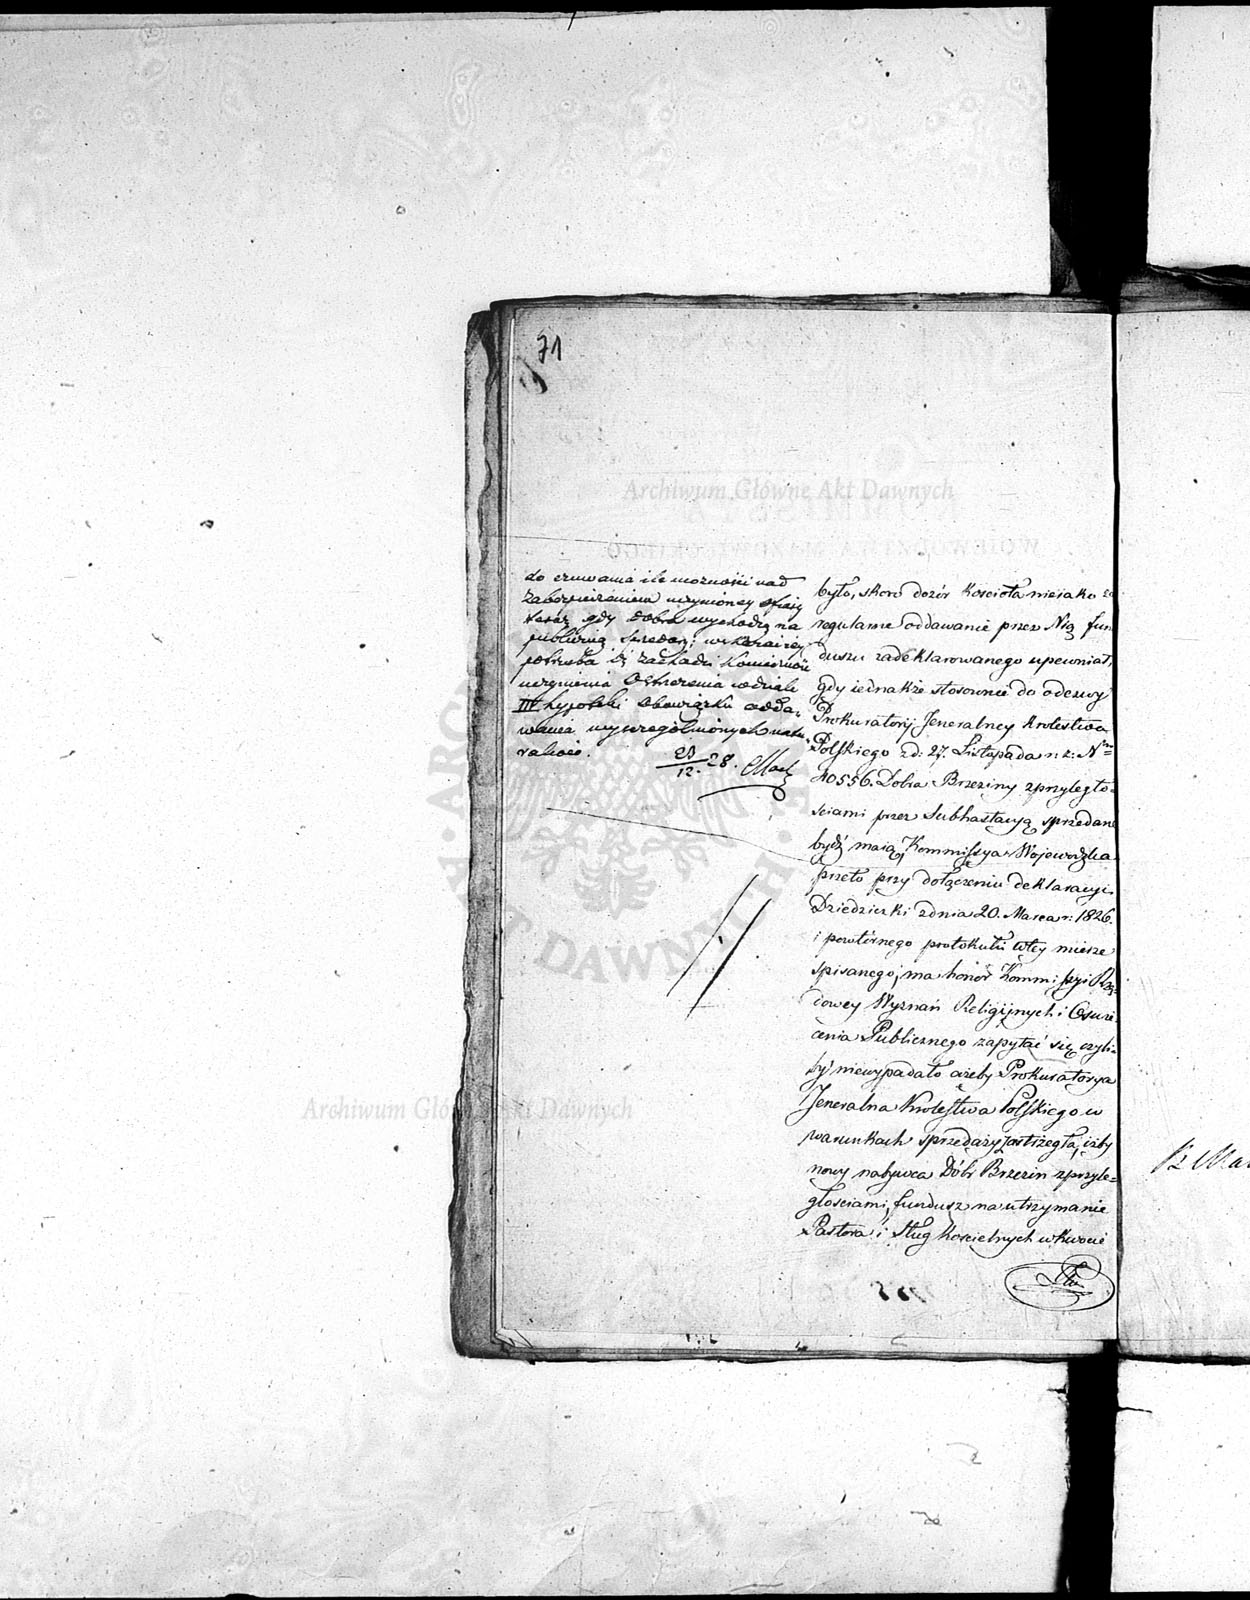 71
do czuwania ile możności nad
zabezpieczeniem uczynionej ofiary
teraz gdy dobra wychodzą na
publiczną sprzedaż; wykazaiż się
potrzeba iż zachodzi konieczność
uczynienia Ostrzeżenia w dziale
III hypoteki obowiązku odda-
wania wyszczególnionych natu-
raliów.
23/12. 28.
było, skoro dozór Kościoła nieiako za
regularne oddawanie przez Nią fun
duszu zadeklarowanego upewniał,
gdy iednakże stosownie do odezwy
Prokuratoryi Jeneralney Królestwa
Polskiego z d: 27. Listopada r: z: Nro
40556. Dobra Brzeziny z przyległo-
sciami przez Subhastacyą sprzedane
bydź maią, Kommissya Wojewódzka
przeto przy dołączeniu deklaracyi
Dziedziczki z dnia 20. Marca r: 1826.
i powtórnego protokułu w tey mierze
spisanego, ma honor Kommissyi Rzą-
dowey Wyznań Religijnych i Oświe-
cenia Publicznego zapytać się czyli-
by niewypadało ażeby Prokuratorya
Jeneralna Królestwa Polskiego w
warunkach sprzedaży zastrzegła, iżby
nowy nabywca Dóbr Brzezin z przyle-
głościami, fundusz na utrzymanie
Pastora i Sług Kościelnych w kwocie
Archiwum Główne Akt Dawnych
Archiwum Główne Akt Dawnych